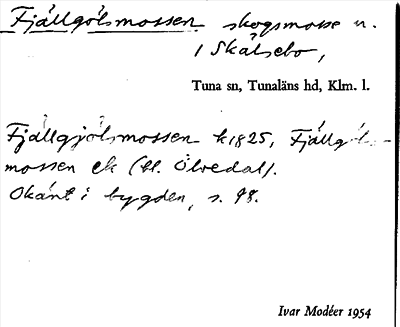 Fjällgölsmossen skogsmosse n.
i Skälsebo,
Tuna sn, Tunaläns hd, Klm. l.
Fjällgjölsmossen k1825, Fjällgöls-
mossen ek (bl. Ölvedal).
Okänt i bygden, s. 98.
Ivar Modéer 1954